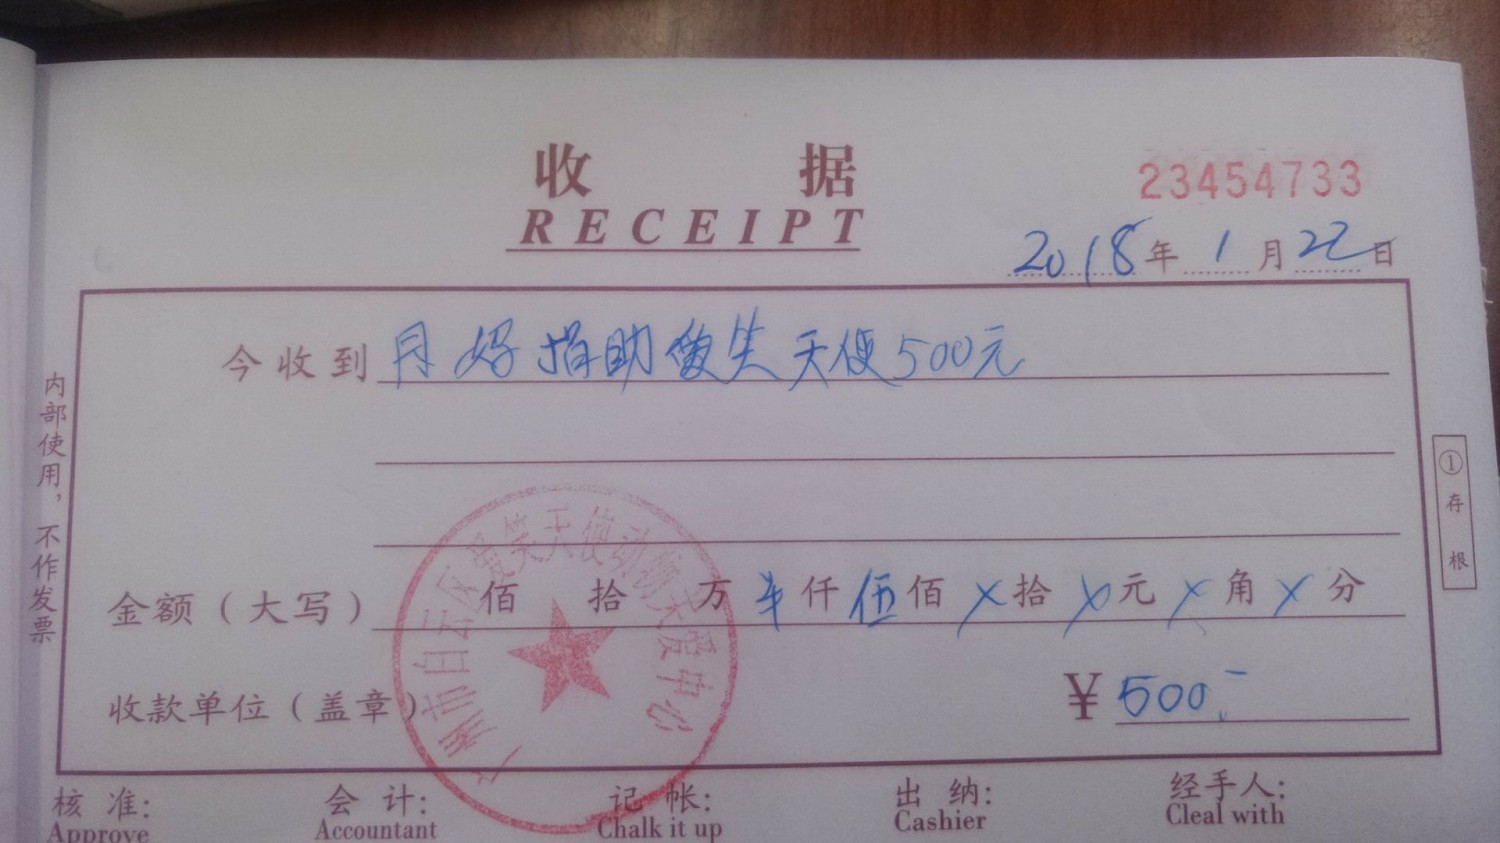 收 据
RECEIPT
23454733
2018年1月22日
今收到 月好捐助微笑天使500元
金额（大写） 佰 拾 万 ¥仟伍佰×拾×元×角×分
收款单位（盖章） ¥ 500.-
广州市白云区爱笑天使动物关爱中心
内部使用，不作发票
①存根
核 准: 会 计: 记 帐: 出 纳: 经手人:
Approve Accountant Chalk it up Cashier Cleal with